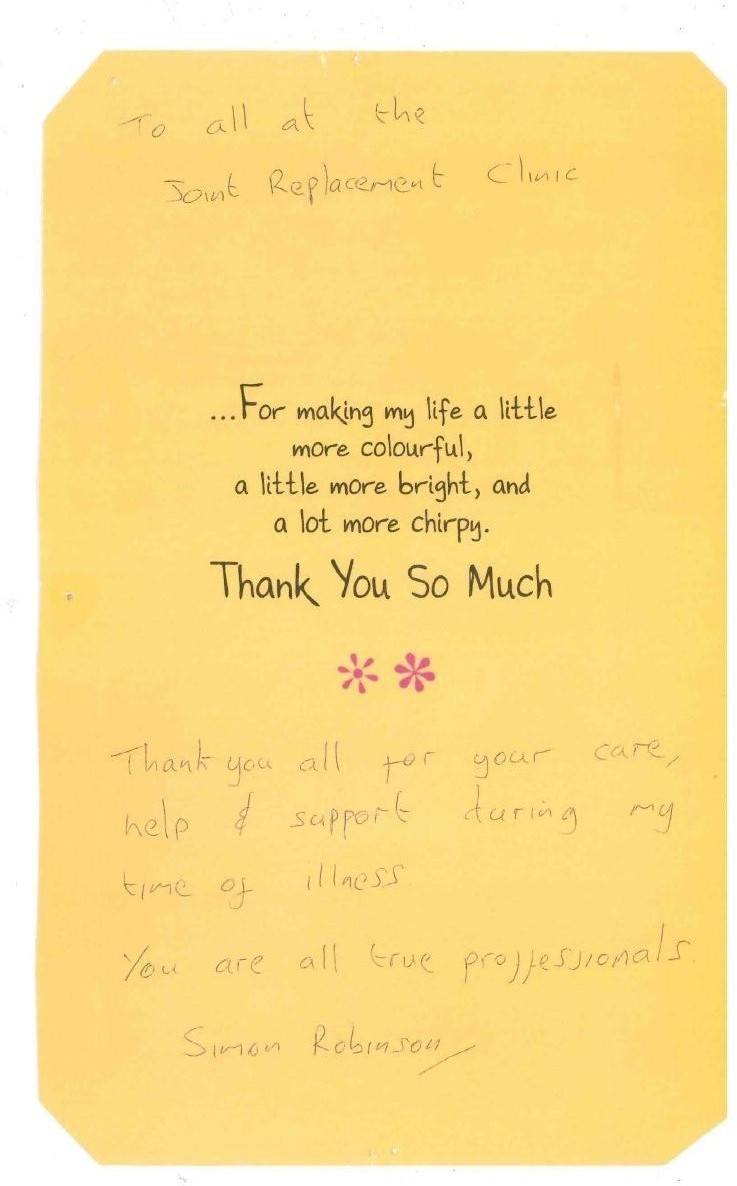 To all at the
Joint Replacement Clinic
...For making my life a little
more colourful,
a little more bright, and
a lot more chirpy.
Thank You So Much
Thank you all for your care,
help & support during my
time of illness
You are all true proffessionals.
Simon Robinson